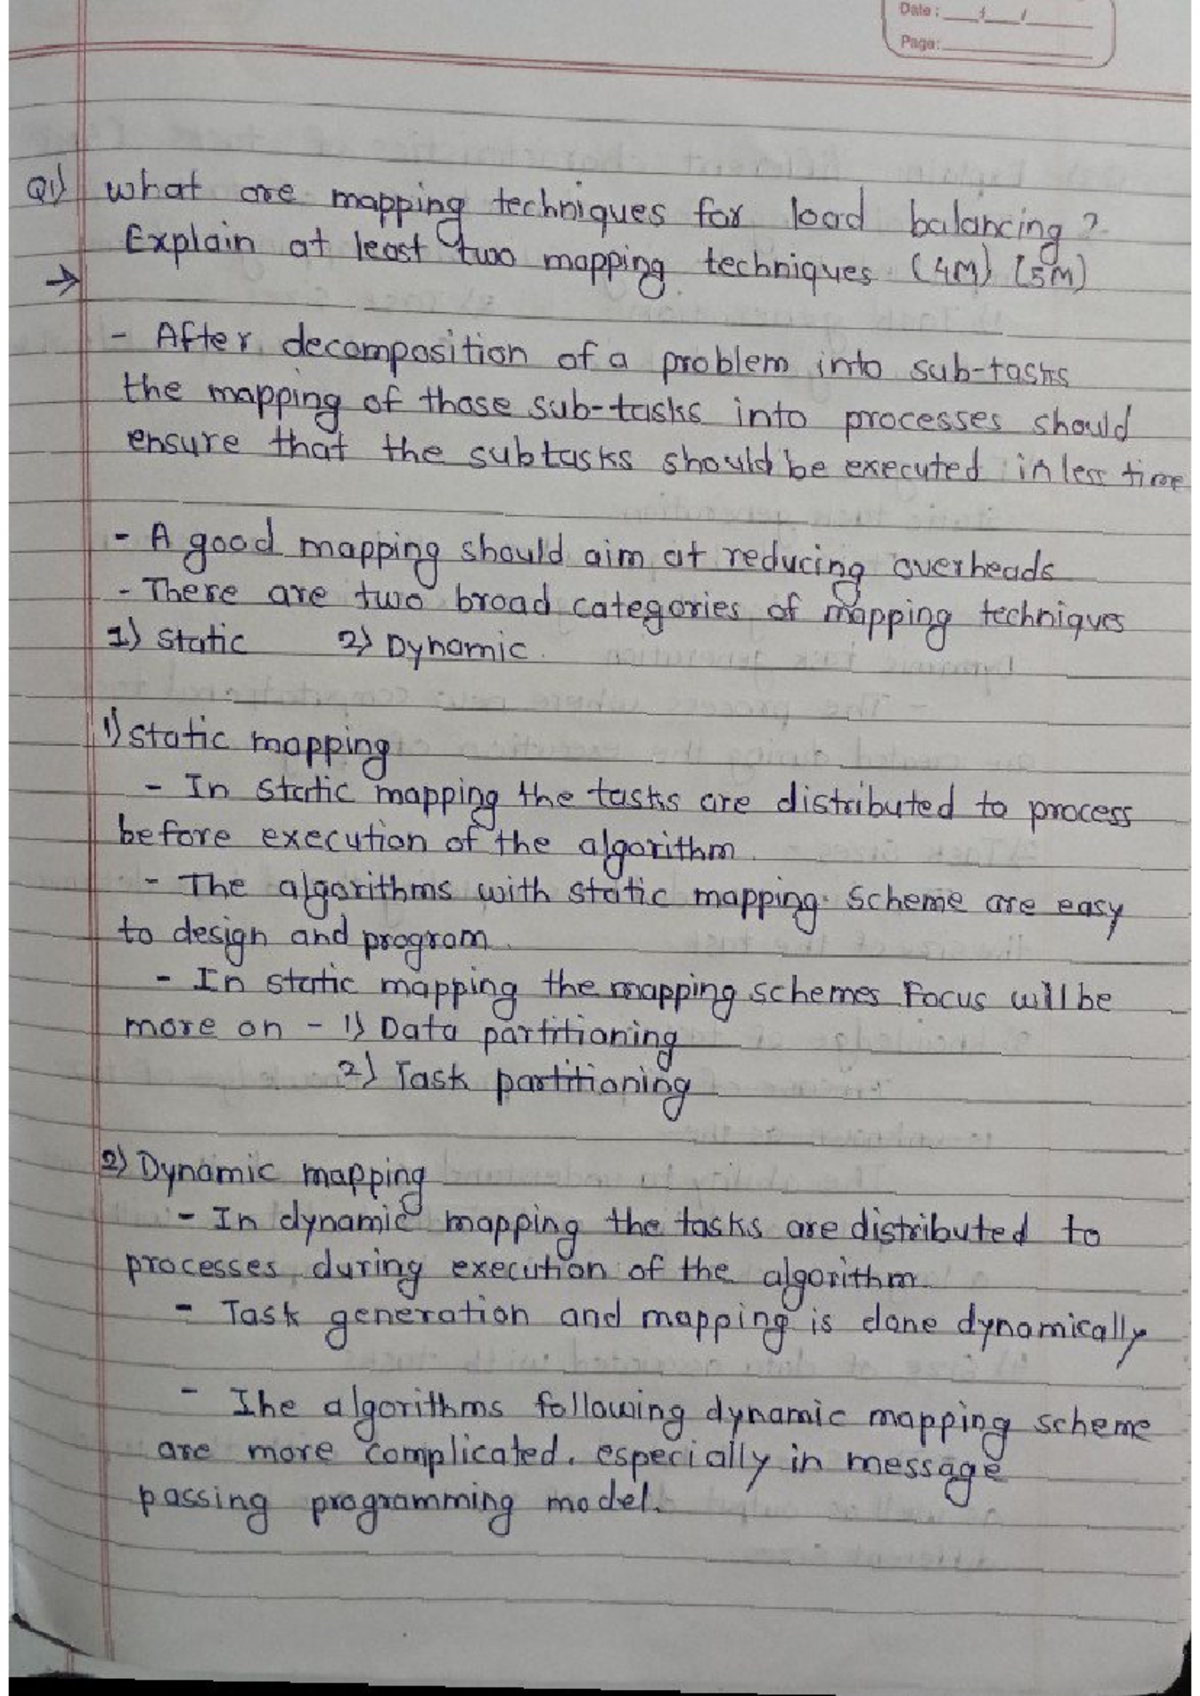 Date :
Page:
Q1) what are mapping techniques for load balancing ?
Explain at least two mapping techniques (4M) (5M)
→
- After decomposition of a problem into sub-tasks
the mapping of those sub-tasks into processes should
ensure that the subtasks should be executed in less time
- A good mapping should aim at reducing overheads
- There are two broad categories of mapping techniques
1) Static 2) Dynamic.
1) static mapping
- In static mapping the tasks are distributed to process
before execution of the algorithm.
- The algorithms with static mapping scheme are easy
to design and program.
- In static mapping the mapping schemes Focus will be
more on - 1) Data partitioning
2) Task partitioning
2) Dynamic mapping
- In dynamic mapping the tasks are distributed to
processes during execution of the algorithm.
- Task generation and mapping is done dynamically
- The algorithms following dynamic mapping scheme
are more complicated. especially in message
passing programming model.